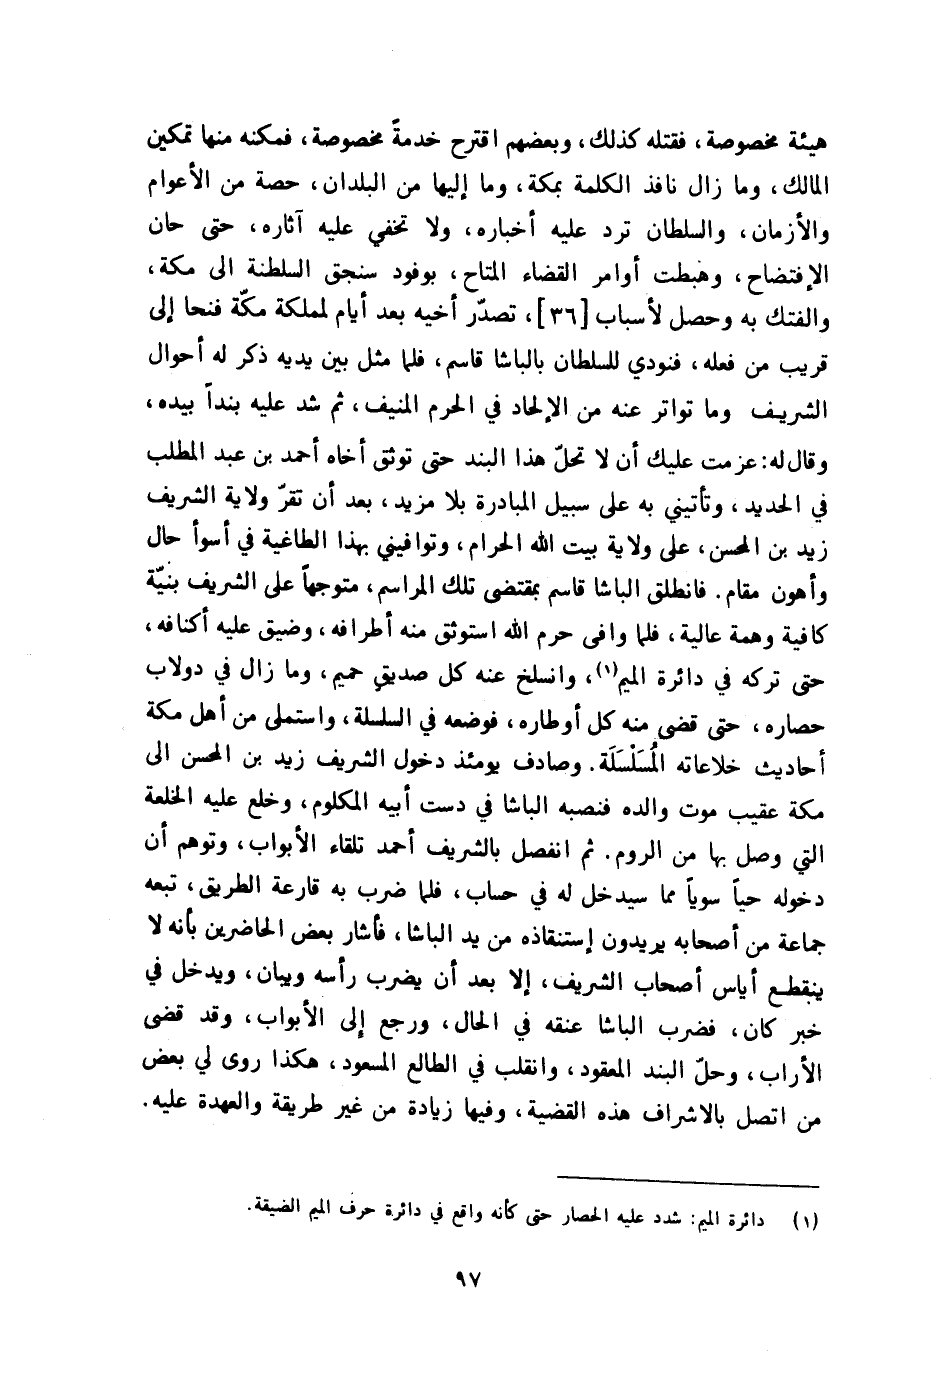 هيئة مخصوصة، فقتله كذلك، وبعضهم اقترح خدمةً مخصوصة، فمكنه منها تمكين
المالك، وما زال نافذ الكلمة بمكة، وما إليها من البلدان، حصة من الأعوام
والأزمان، والسلطان ترد عليه أخباره، ولا تخفي عليه آثاره، حتى حان
الإفتضاح، وهبطت أوامر القضاء المتاح، بوفود سنجق السلطنة الى مكة،
والفتك به وحصل لأسباب [٣٦]، تصدّر أخيه بعد أيام لمملكة مكّة فنحا إلى
قريب من فعله، فنودي للسلطان بالباشا قاسم، فلما مثل بين يديه ذكر له أحوال
الشريف وما تواتر عنه من الإلحاد في الحرم المنيف، ثم شد عليه بنداً بيده،
وقال له: عزمت عليك أن لا تحلّ هذا البند حتى توثق أخاه أحمد بن عبد المطلب
في الحديد، وتأتيني به على سبيل المبادرة بلا مزيد، بعد أن تقرّ ولاية الشريف
زيد بن المحسن، على ولاية بيت الله الحرام، وتوافيني بهذا الطاغية في أسوأ حال
وأهون مقام. فانطلق الباشا قاسم بمقتضى تلك المراسم، متوجهاً على الشريف بنيّة
كافية وهمة عالية، فلما وافى حرم الله استوثق منه أطرافه، وضيق عليه أكنافه،
حتى تركه في دائرة الميم(١)، وانسلخ عنه كل صديقٍ حميم، وما زال في دولاب
حصاره، حتى قضى منه كل أوطاره، فوضعه في السلسلة، واستملى من أهل مكة
أحاديث خلاعاته المُسَلْسَلَة. وصادف يومئذ دخول الشريف زيد بن المحسن الى
مكة عقيب موت والده فنصبه الباشا في دست أبيه المكلوم، وخلع عليه الخلعة
التي وصل بها من الروم. ثم انفصل بالشريف أحمد تلقاء الأبواب، وتوهم أن
دخوله حياً سوياً مما سيدخل له في حساب، فلما ضرب به قارعة الطريق، تبعه
جماعة من أصحابه يريدون إستنقاذه من يد الباشا، فأشار بعض الحاضرين بأنه لا
ينقطع أياس أصحاب الشريف، إلا بعد أن يضرب رأسه ويبان، ويدخل في
خبر كان، فضرب الباشا عنقه في الحال، ورجع إلى الأبواب، وقد قضى
الأراب، وحلّ البند المعقود، وانقلب في الطالع المسعود، هكذا روى لي بعض
من اتصل بالاشراف هذه القضية، وفيها زيادة من غير طريقة والعهدة عليه.
(١) دائرة الميم: شدد عليه الحصار حتى كأنه واقع في دائرة حرف الميم الضيقة.
٩٧